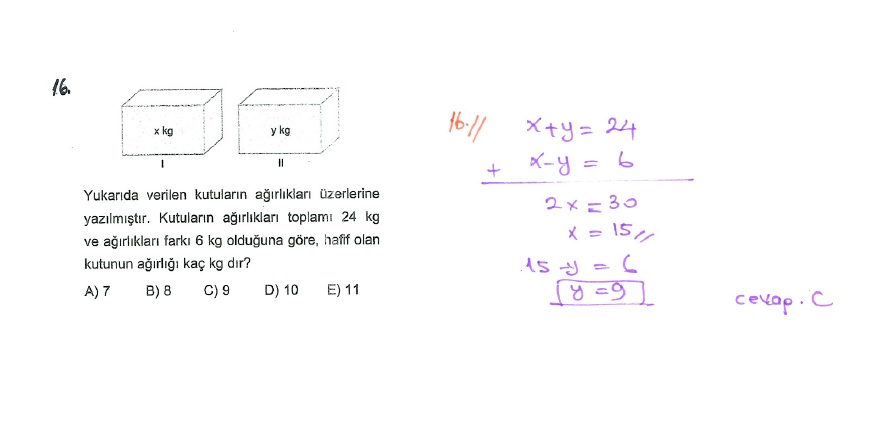 16.
x kg
y kg
I
II
Yukarıda verilen kutuların ağırlıkları üzerlerine
yazılmıştır. Kutuların ağırlıkları toplamı 24 kg
ve ağırlıkları farkı 6 kg olduğuna göre, hafif olan
kutunun ağırlığı kaç kg dır?
A) 7 B) 8 C) 9 D) 10 E) 11
16.//
x+y = 24
+ x-y = 6
2x = 30
x = 15//
15-y = 6
y = 9
cevap. C